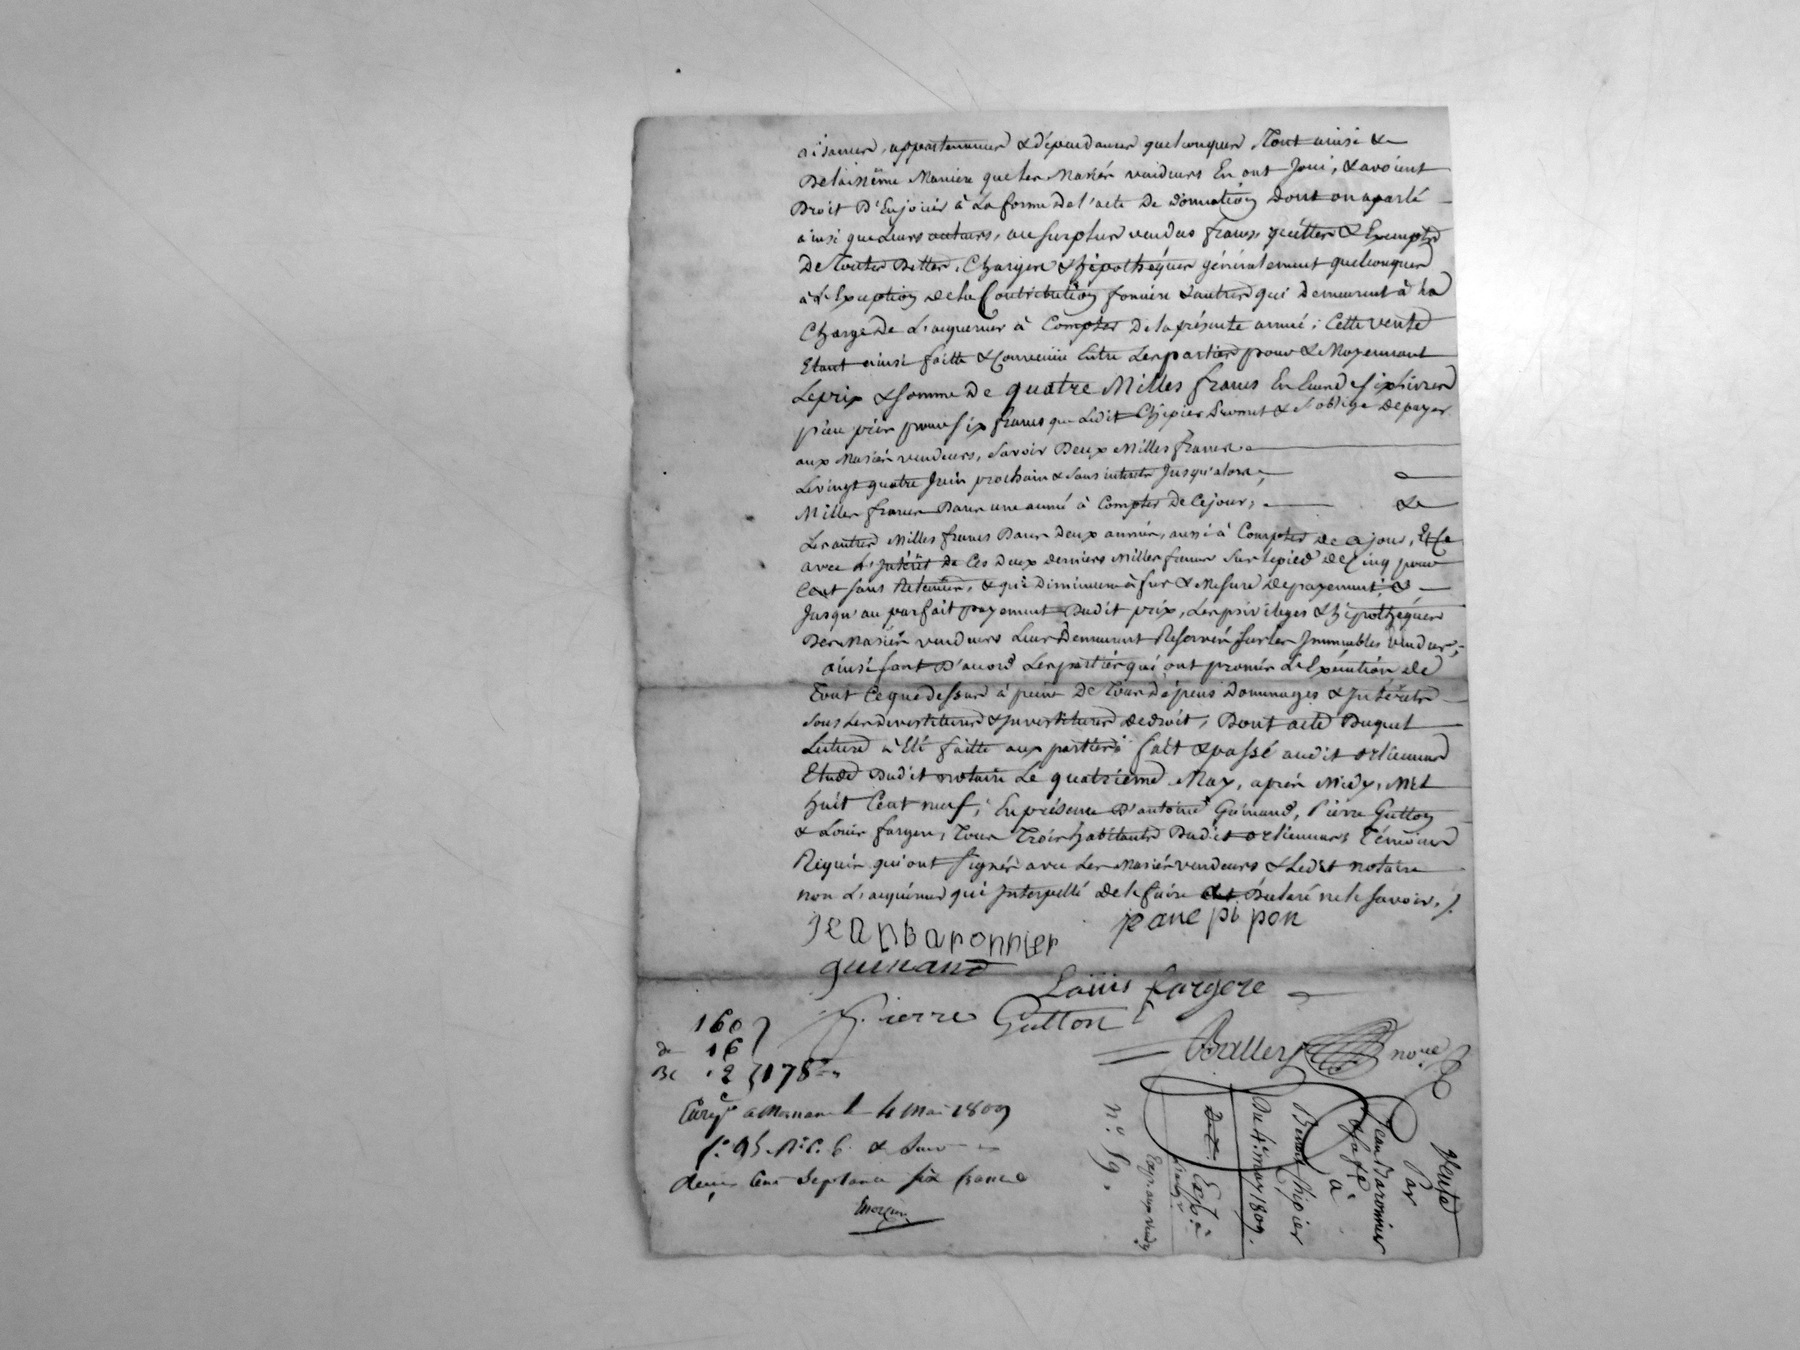 aisances, appartenances & dépendances quelconques, Tout ainsi &
De la même Maniere que les Mariés vendeurs En ont Joui, & avoient
Droit D'En jouir à La forme de l'acte De donnation dont on a parlé
ainsi que Leurs auteurs, au surplus vendus francs, quittes & Exempts
De Toutes Dettes, Charges & hipothéques généralement quelconques
à L'Exception de la Contribution fonciere & autres qui demeurent à La
Charge De L'acquereur à Compter De la présente année; Cette vente
Etant ainsi faitte & Convenüe Entre Les parties pour & Moyennant
Le prix & somme De quatre Milles francs En Ecus de six Livres
piece pour six francs que Ledit Chipier Promet & s'oblige de payer
aux Mariés vendeurs, Savoir Deux Milles francs
Le vingt quatre Juin prochain & sans interets Jusqu'alors,
Milles francs Dans une année à Compter De Ce jour, &
Les autres Milles francs Dans Deux années, aussi à Compter de ce jour, Et Ce
avec L'Intérêt de Ces deux derniers Milles francs Sur le pied de Cinq pour
Cent sans Retenüe, & qui Diminuera à fur & Mesure De payement, &
Jusqu'au parfait payement Dudit prix, Les privileges & hipothéques
Des Mariés vendeurs Leur Demeurent Reservés sur Les Immeubles vendus;
ainsi sont D'acord Les parties qui ont promis L'Exécution de
Tout Ce que dessus à peine De Tous Dépens Dommages & Intérêts
Sous Les divestitures & Investitures de droit, Dont acte Duquel
Lecture à Eté faitte aux parties; fait & passé audit Orlienas
Etude Dudit notaire Le quatrieme May, après Midy, Mil
huit Cent neuf; En présence D'antoine Guinand, Pierre Gutton
& Louis fargere, Tous Trois habitants Dudit Orlienas, Témoins
Requis qui ont signés avec Les Mariés vendeurs & Ledit notaire
non L'acquéreur qui Interpellé de le faire à Déclaré ne le savoir. /.
jean baronnier jeane pipon
guinand
Louis fargere
Pierre Gutton
Ballery nore
160
de 16
Bc 2 } 178
Enregé a Mornant le 4 mai 1809
fo. 95 Ro. C. 6. &
cent septante six francs
Vente
Par
Jean Baronnier
& sa fe
à
Benoit Chipier
Du 4. may 1809.
D.T. Exp. à
No. 59.